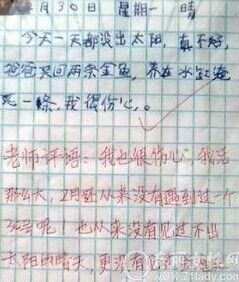 月30日 星期一 晴
今天一天都没出太阳,真不好,
爸爸买回两条金鱼,养在水缸淹
死一条,我很伤心。
老师评语:我也很伤心,我活
那么大,2月还从来没有遇到过一个
30号呢!也从来没有见过不出
太阳的晴天,更没有见过